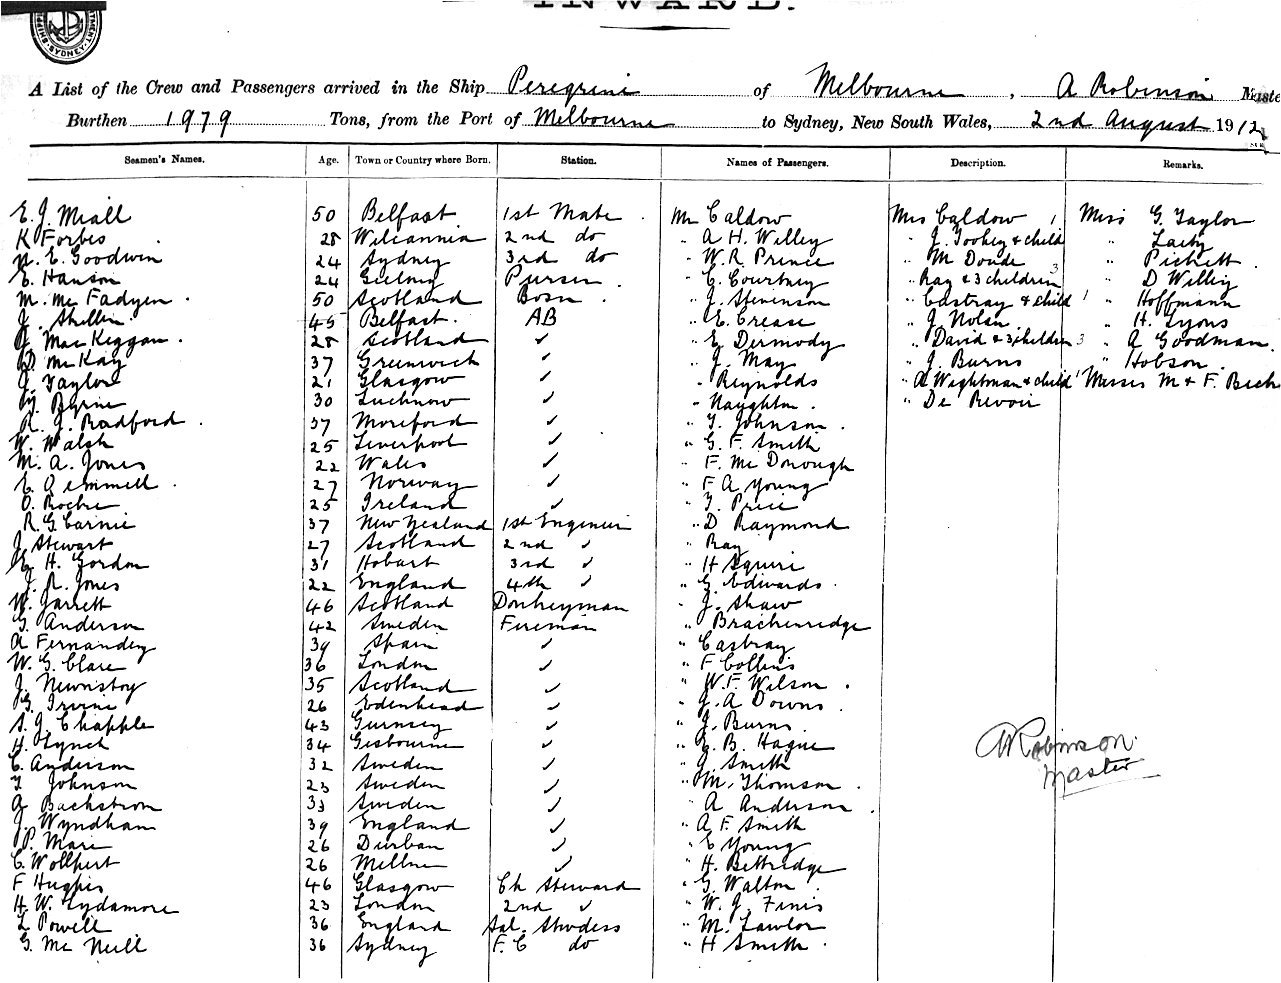 INWARD.
SYDNEY
A List of the Crew and Passengers arrived in the Ship Peregrine of Melbourne, A Robinson Maste
Burthen 1979 Tons, from the Port of Melbourne to Sydney, New South Wales, 2nd August 1912
Seamen's Names. Age. Town or Country where Born. Station. Names of Passengers. Description. Remarks.
E. J. Miall 50 Belfast 1st Mate Mr Caldow Mrs Caldow 1 Miss G. Taylor
K Forbes 28 Wilcannia 2nd do " A H. Willey " J. Toohey & child " Lacey
N. E. Goodwin 24 Sydney 3rd do " W. R Prince " M Doude " Pickett
E. Hanson 24 Purser " C. Courtney " Ray & 3 children 3 " D Willey
M. Mc Fadyen 50 Scotland Bosn " J. Stevenson " Castray & child 1 " Hoffmann
J. 45 Belfast AB " E. Crease " J. Nolan " H. Lyons
J Mac Keggan 28 Scotland ✓ " E Dermody " David & 3 children 3 " A Goodman
D. Mc Kay 37 Greenwich ✓ " J. May " J. Burns " Hobson
J Taylor 21 Glasgow ✓ " Reynolds " A Wightman & child 1 Misses M & F.
Byrne 30 Lucknow ✓ " Naughton " De Revoir
R. J. Radford 37 Moreford ✓ " T. Johnson
W. Walsh 25 Liverpool ✓ " G. F. Smith
M. A. Jones 22 Wales ✓ " F. Mc Donough
E. 27 Norway ✓ " F A Young
O. Roche 25 Ireland ✓ " T. Price
R. G. Carnie 37 New Zealand 1st Engineer " D Raymond
J Stewart 27 Scotland 2nd ✓ " Ray
E. H. Gordon 31 Hobart 3rd ✓ " H Squire
J. R. Jones 22 England 4th ✓ " G. Edwards
W. Jarrett 46 Scotland Donkeyman " J. Shaw
G. Anderson 42 Sweden Fireman " Brackenredge
A Fernandez 39 Spain ✓ " Castray
W. G. Clare 36 London ✓ " F Collins
J. 35 Scotland ✓ " W. F. Wilson
G. Irvine 26 Edenhead ✓ " J. A Downs
S. J. Chapple 43 Gurnsey ✓ " J. Burns
H. Lynch 34 Gisbourne ✓ " E. B. Hague
C. Anderson 32 Sweden ✓ " J. Smith
T Johnson 23 Sweden ✓ " M. Thomson
A Backstrom 33 Sweden ✓ " A Anderson
J. Wyndham 39 England ✓ " A F. Smith
P. Mare 26 Durban ✓ " E Young
C. Wollpert 26 ✓ " H. Bettridge
F Hughes 46 Glasgow Ch Steward " G. Walton
H. W. Lydamore 23 London 2nd ✓ " W. J. Finis
L Powell 36 England Sal. " M. Lawlor
G. Mc Neill 36 Sydney F. C do " H Smith
A Robinson
Master